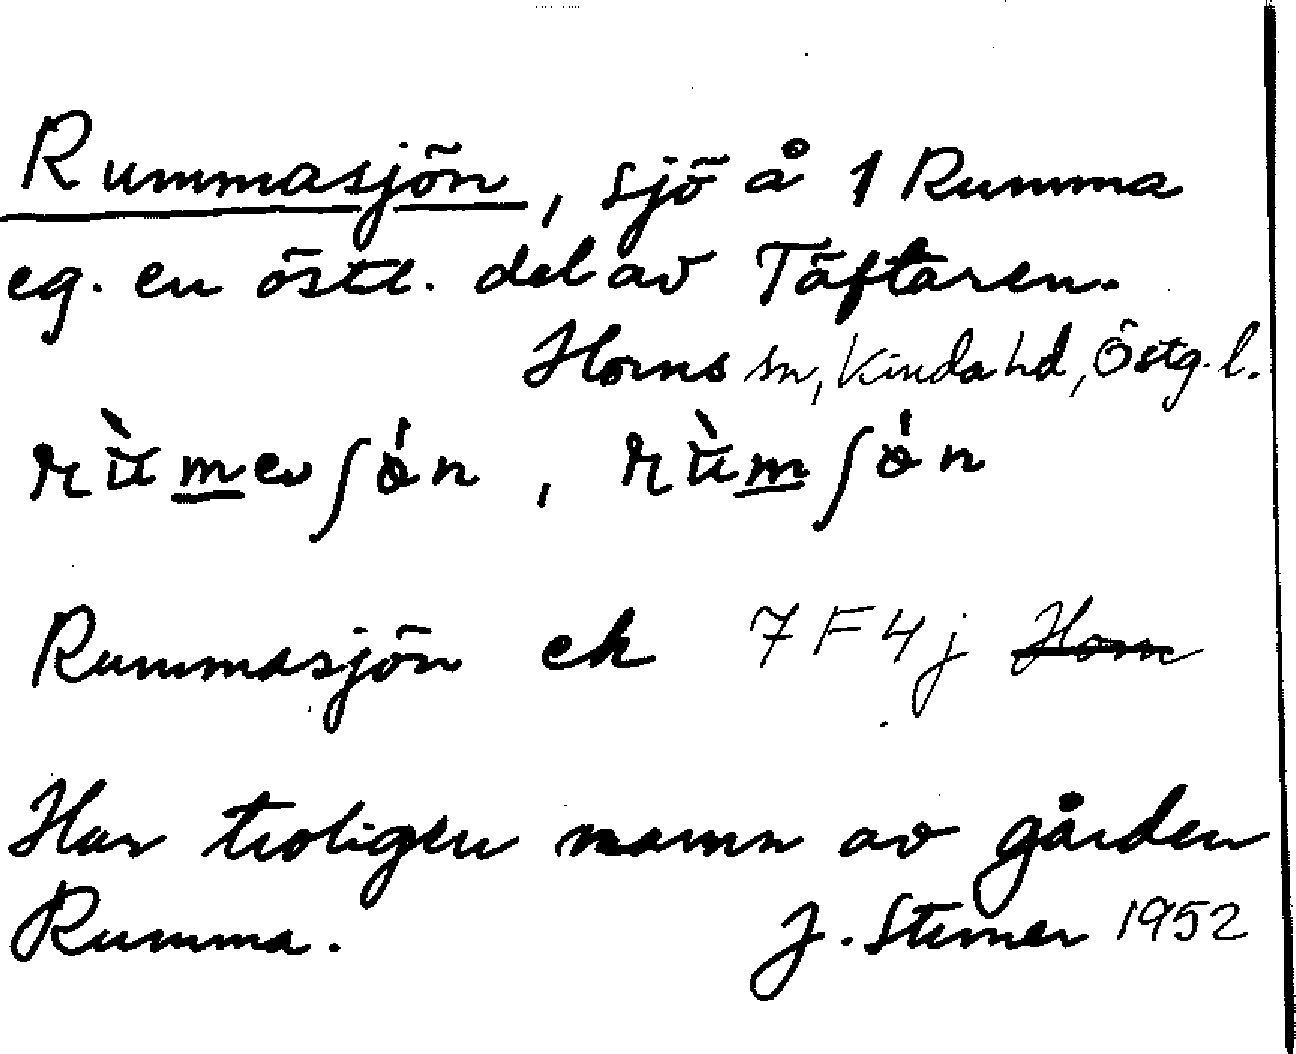 Rummasjön, sjö å 1 Rumma
eg. en östl. del av Täftaren.
Horns sn, Kinda hd, Östg. l.
Rummasjön ek 7F4j Horn
Har troligen namn av gården
Rumma. J. Sterner 1952